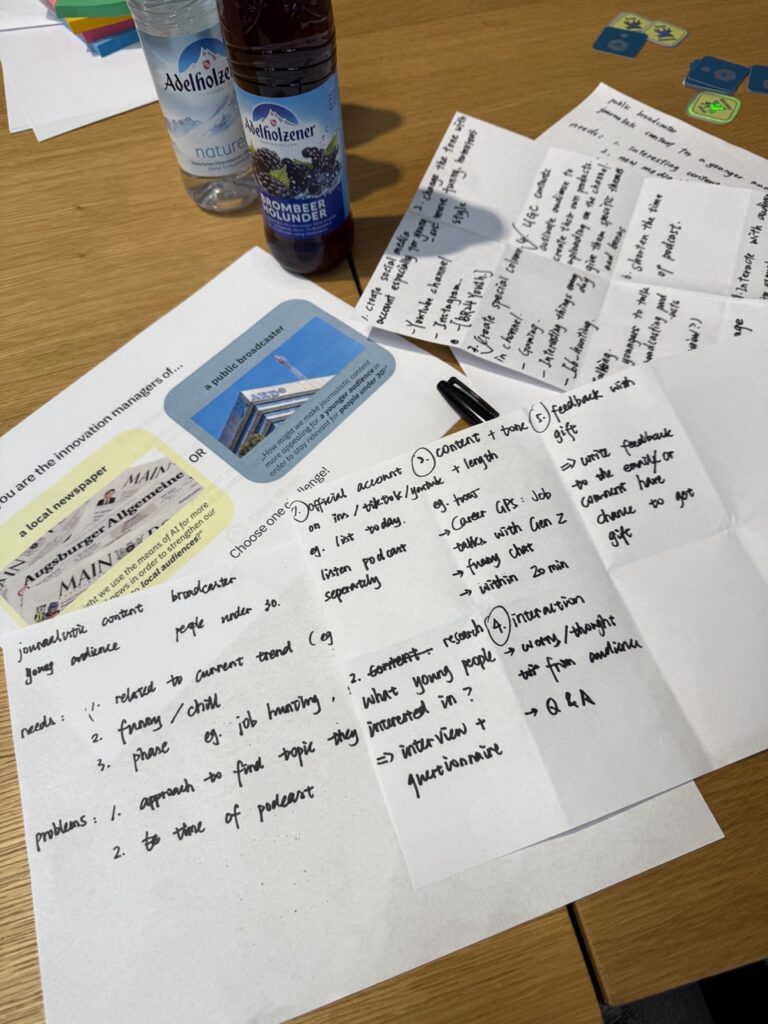 Adelholzener
nature
Adelholzener
BROMBEER
HOLUNDER
public broadcaster
journalistic content for a younger
needs: 1. Interesting content
2. new media
1. Create social media
account especially for young
- Youtube channel
- Instagram.
2. Change the tone with
more funny, humorous
style
Create special column
in channel.
- Gaming.
- Interesting things
- Job-Hunting.
UGC contribute
activate audience to
create their own products
uploading on the channel
give them specific themes
and bonus
6. Shorten the time
of podcast.
7. Interacte with audience
you are the innovation managers of...
a public broadcaster
„How might we make journalistic content
more appealing for a younger audience in
order to stay relevant for people under 30?"
OR
a local newspaper
MAIN
Augsburger Allgemeine
MAIN
we use the means of AI for more
news in order to strengthen our
local audiences?"
Choose one challenge!
journalistic content broadcaster
young audience people under 30.
needs: 1. related to current trend (eg
2. funny / chill
3. phase eg. job hunting,
problems: 1. approach to find topic they
2. to time of podcast
2. official account
on ins / tiktok / youtube
eg. list today.
listen podcast
seperately
3. content + tone
+ length
eg. humor
→ Career GPS: Job
talks with Gen Z
→ funny chat
→ within 20 min
5. feedback with
gift
⇒ write feedback
to the email / or
comment have
chance to get
gift
2. content research
what young people
interested in?
⇒ interview +
questionnaire
4. interaction
→ worry / thought
from audience
→ Q & A